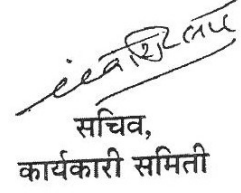 सचिव,
कार्यकारी समिती